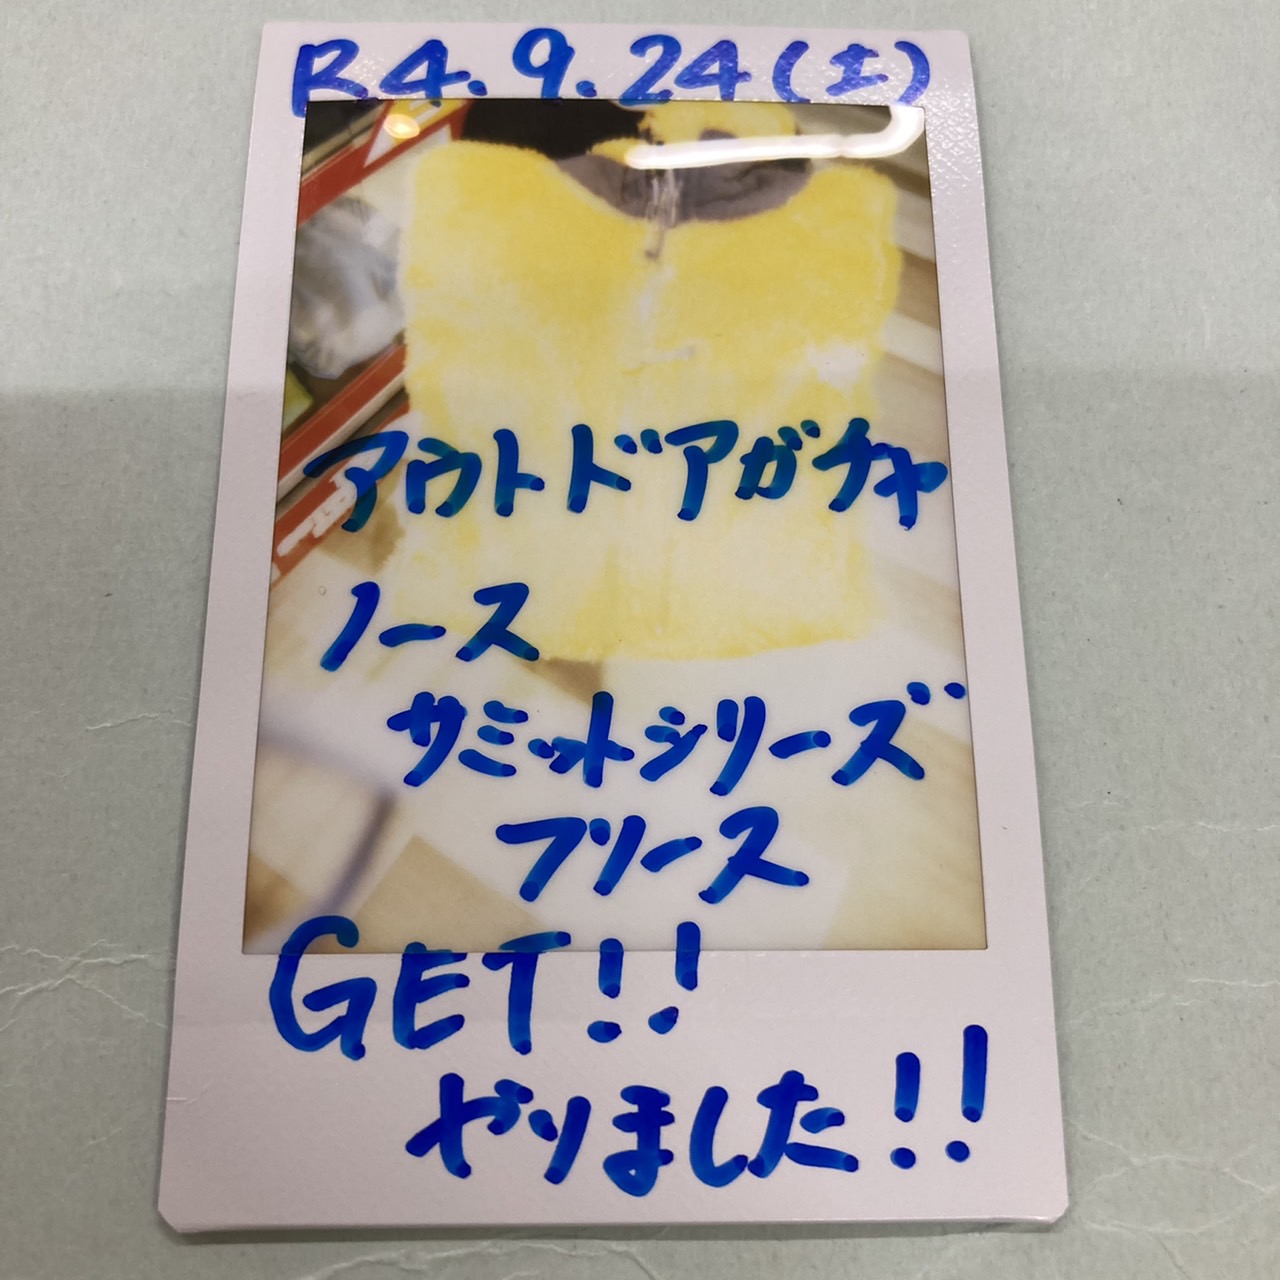 R4.9.24(土)
アウトドアガチャ
ノース
サミットシリーズ
フリース
GET!!
やりました!!